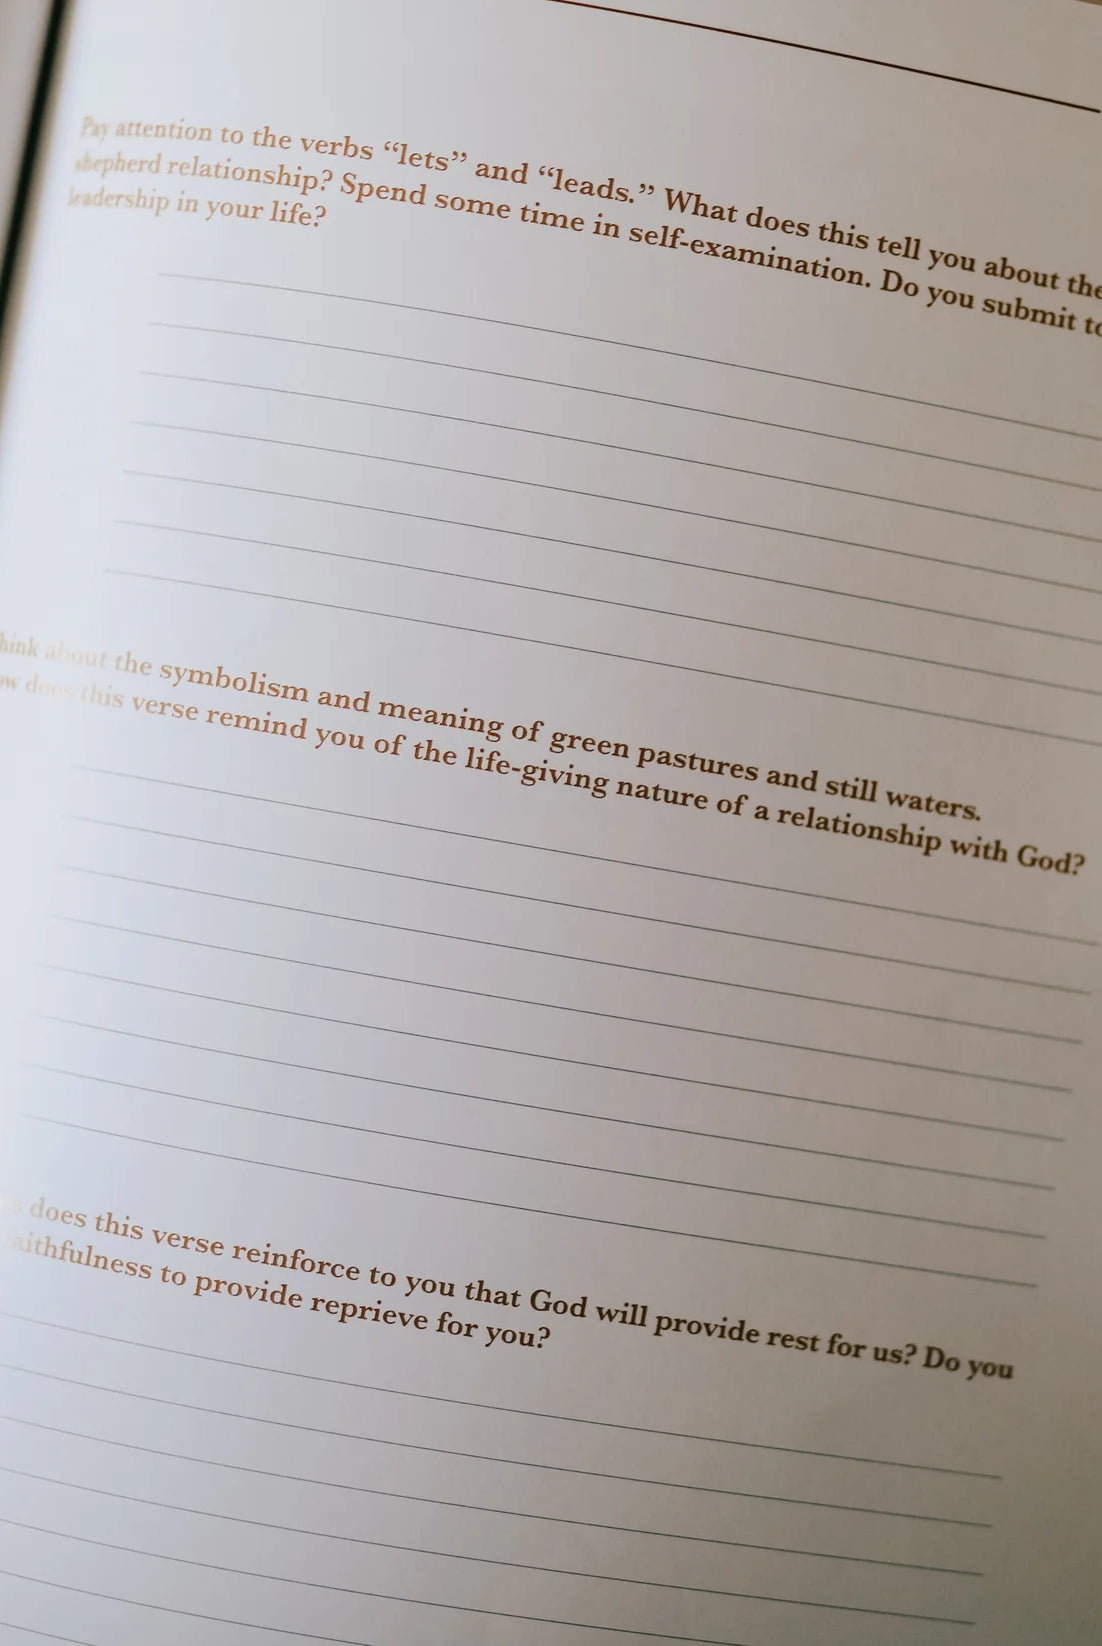 Pay attention to the verbs “lets” and “leads.” What does this tell you about the
shepherd relationship? Spend some time in self-examination. Do you submit to
leadership in your life?
hink about the symbolism and meaning of green pastures and still waters.
ow does this verse remind you of the life-giving nature of a relationship with God?
does this verse reinforce to you that God will provide rest for us? Do you
faithfulness to provide reprieve for you?